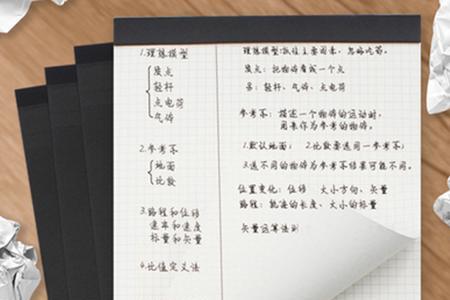 1.理想模型
质点
轻杆
点电荷
气体
2.参考系
地面
比数
3.路程和位移
速率和速度
标量和矢量
4.比值定义法
理想模型:抓住主要因素，忽略次等。
质点：把物体看成一个点
杆：轻杆、气体、点电荷
参考系：描述一个物体的运动时，
用来作为参考的物体。
1.默认地面； 2.比数要选同一参考系；
3.选不同的物体为参考系结果可能不同。
位置变化：位移 大小方向、矢量
路程：轨迹的长度、大小的标量
矢量运算法则